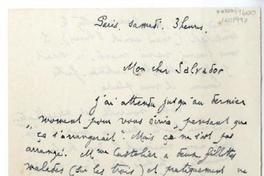 Paris, samedi. 3 heures.
Mon cher Salvador
j'ai attendu jusqu'au dernier
moment pour vous écrire, pensant que
ça s'arrangerait. Mais ça ne s'est pas
arrangé. Mme Castelier a deux fillettes
malades (sur les trois) et pratiquement ne